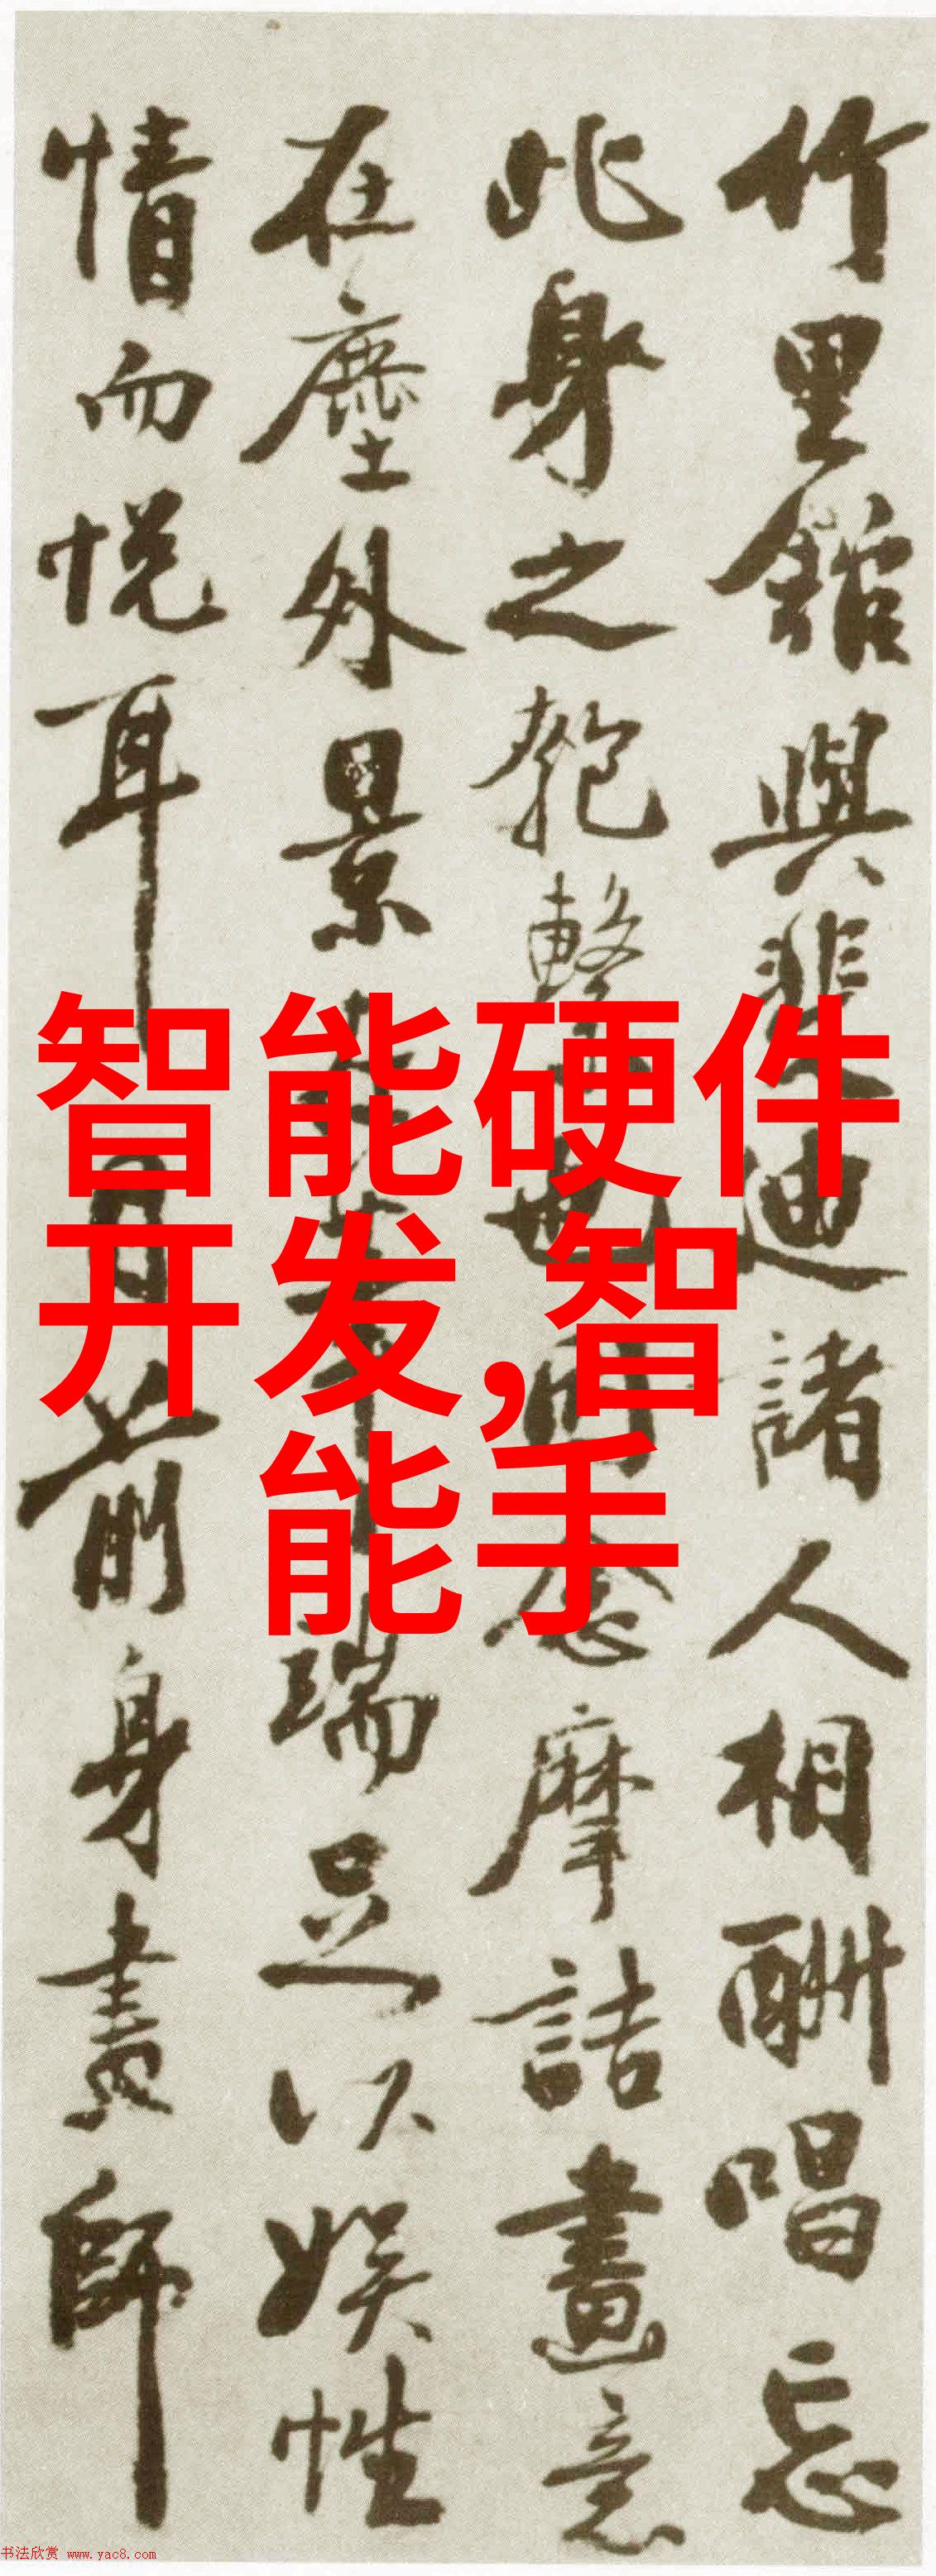 智能硬件
开发,智
能手
竹里館與裴迪諸人相酬唱忘
此身之匏繫也念摩詰畫意
在塵外景在筆端足以娛性
情而悅耳目前身畫師
书法欣赏 www.yac8.com